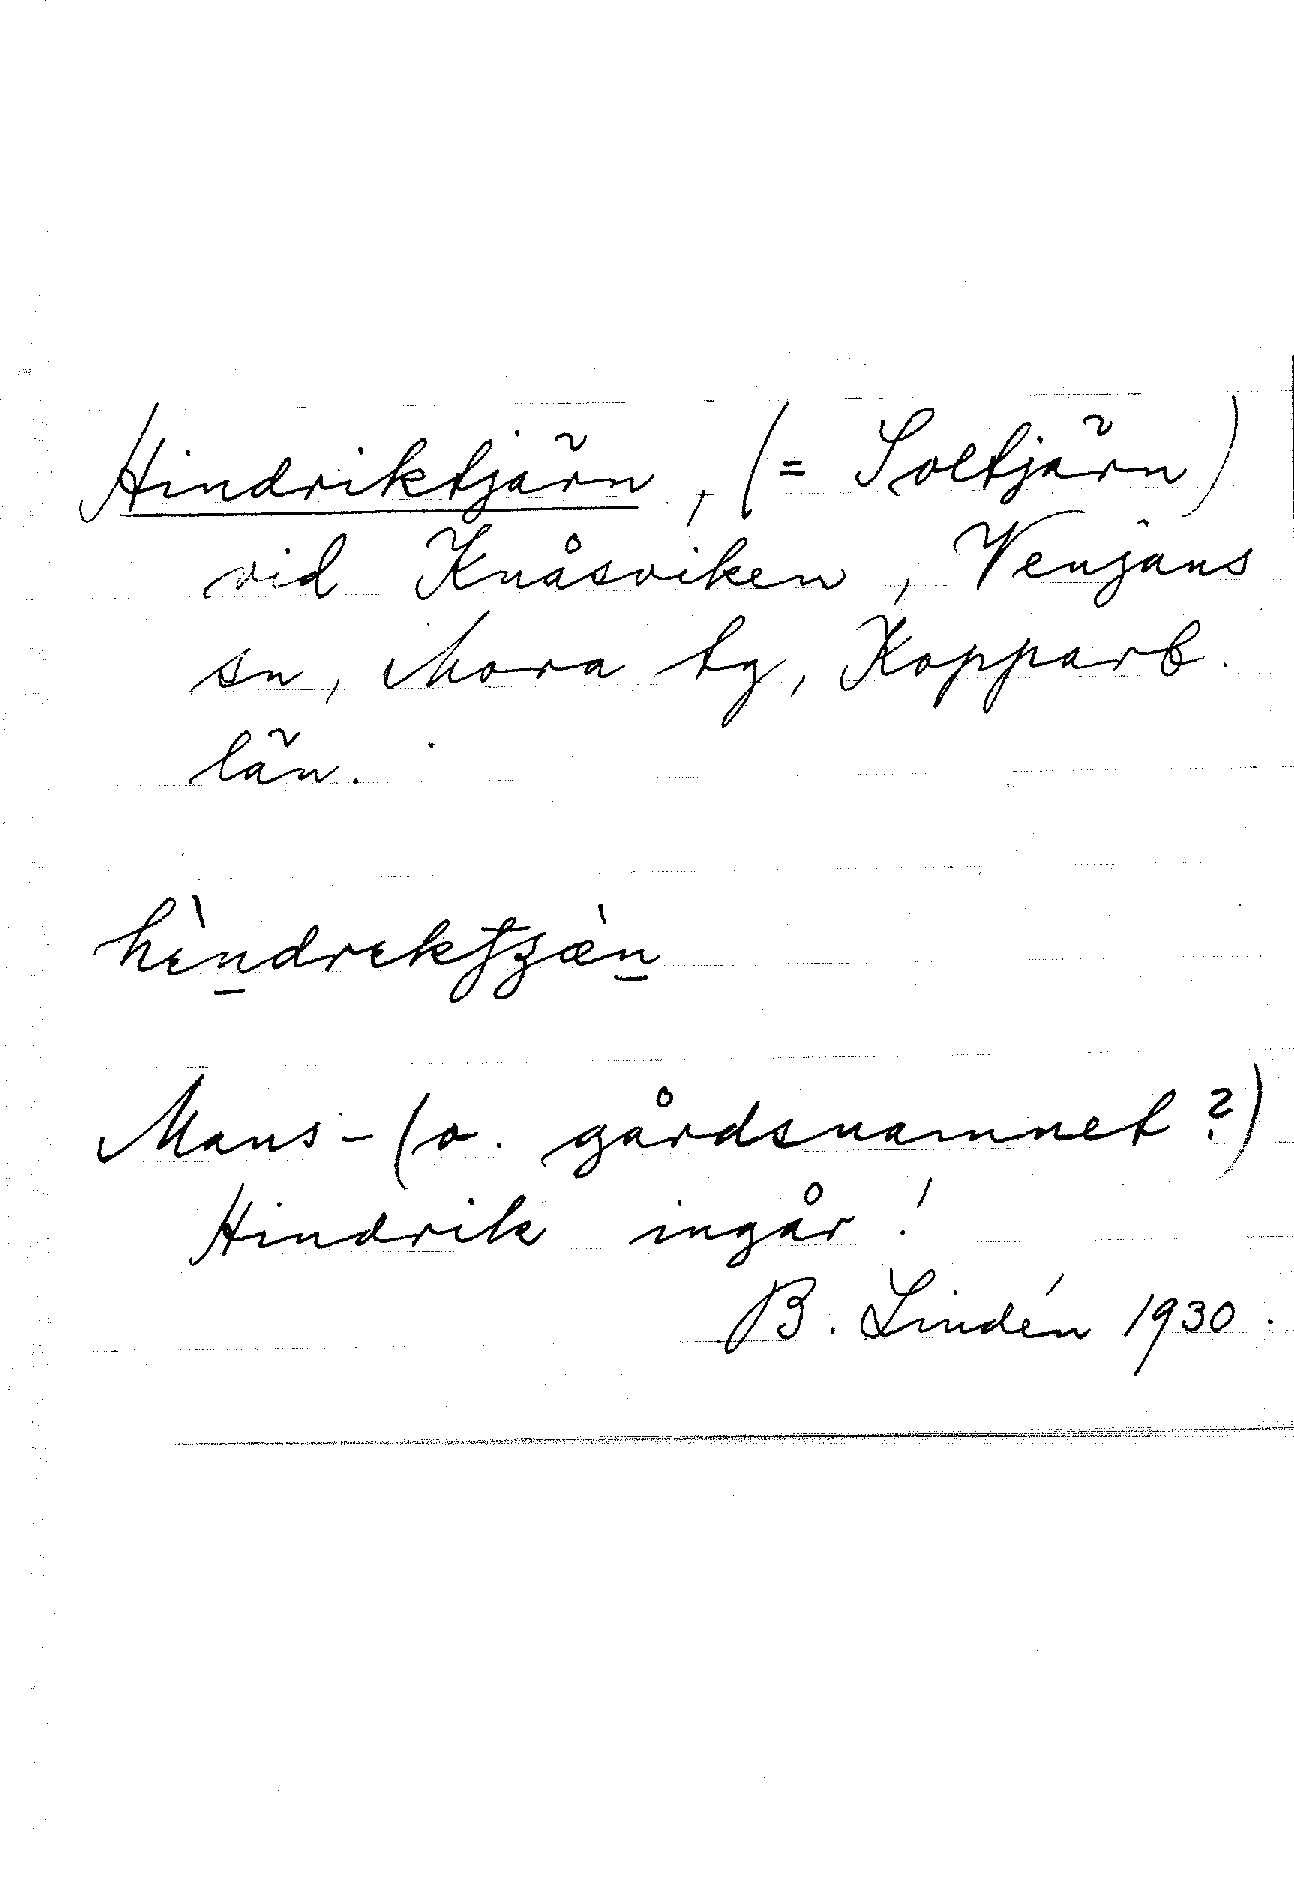 Hindriktjärn, (= Soltjärn)
vid Knåsviken, Venjans
sn, Mora tg, Kopparb.
län.
Mans- (o. gårdsnamnet?)
Hindrik ingår!
B. Lindén 1930.